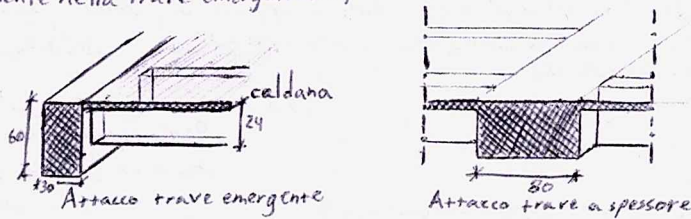 nella trave
caldana
60
24
30
80
Attacco trave emergente
Attacco trave a spessore